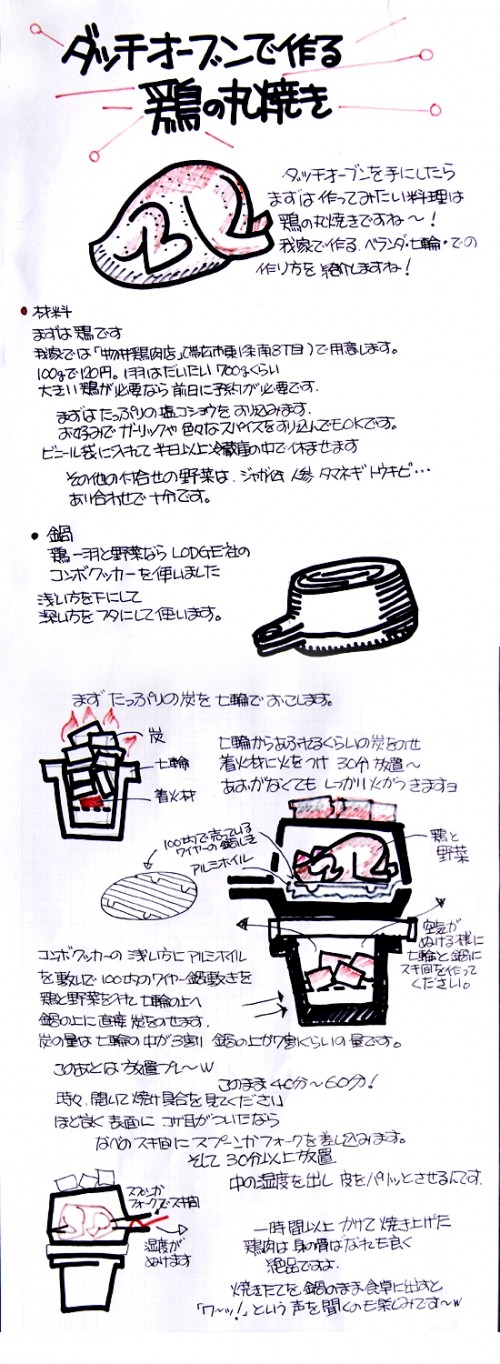 ダッチオーブンで作る
鶏の丸焼き
ダッチオーブンを手にしたら
まずは作ってみたい料理は
鶏の丸焼きですね〜!
我家で作る、ベランダ七輪・での
作り方を紹介しますね!
• 材料
まずは鶏です
我家では「物井鶏肉店」(帯広市東1条南8丁目)で用意します。
100gで120円。1羽はだいたい700gくらい
大きい鶏が必要なら前日に予約が必要です.
まずはたっぷりの塩コショウをすり込みます.
お好みでガーリックや色々なスパイスをすり込んでもOKです。
ビニール袋に入れて半日以上冷蔵庫の中で休ませます
その他の付合せの野菜は、ジャガ芋 人参 タマネギ トウキビ…
あり合わせで十分です。
• 鍋
鶏一羽と野菜なら LODGE社の
コンボクッカーを使いました
浅い方を下にして
深い方をフタにして使います。
まず たっぷりの炭を 七輪で おこします。
炭
七輪
着火材
七輪からあふれるくらいの炭をのせ
着火材に火をつけ 30分 放置〜
あおがなくても しっかり火がつきますヨ
100均で売っている
ワイヤーの鍋しき
アルミホイル
鶏と
野菜
空気が
ぬける様に
七輪と鍋に
スキ間を作って
ください。
コンボクッカーの 浅い方に アルミホイル
を敷いて 100均のワイヤー鍋敷きを
鶏と野菜を入れて 七輪の上へ
鍋の上に直接 炭をのせます.
炭の量は 七輪の中が3割 鍋の上が7割くらいの量です。
このあとは 放置プレ〜w
このまま 40分〜60分!
時々、開いて焼け具合を見てください
ほど良く 表面に コゲ目がついたなら
なべのスキ間に スプーンかフォークを差し込みます。
そして 30分以上放置
中の湿度を出し 皮をパリッとさせるんです.
スプーンか
フォークで スキ間
湿度が
ぬけます
一時間以上 かけて 焼き上げた
鶏肉は 身の骨ばなれも良く
絶品ですよ.
焼きたてを 鍋のまま 食卓に出すと
「ワ〜ッ!」という声を聞くのも楽しみです〜w